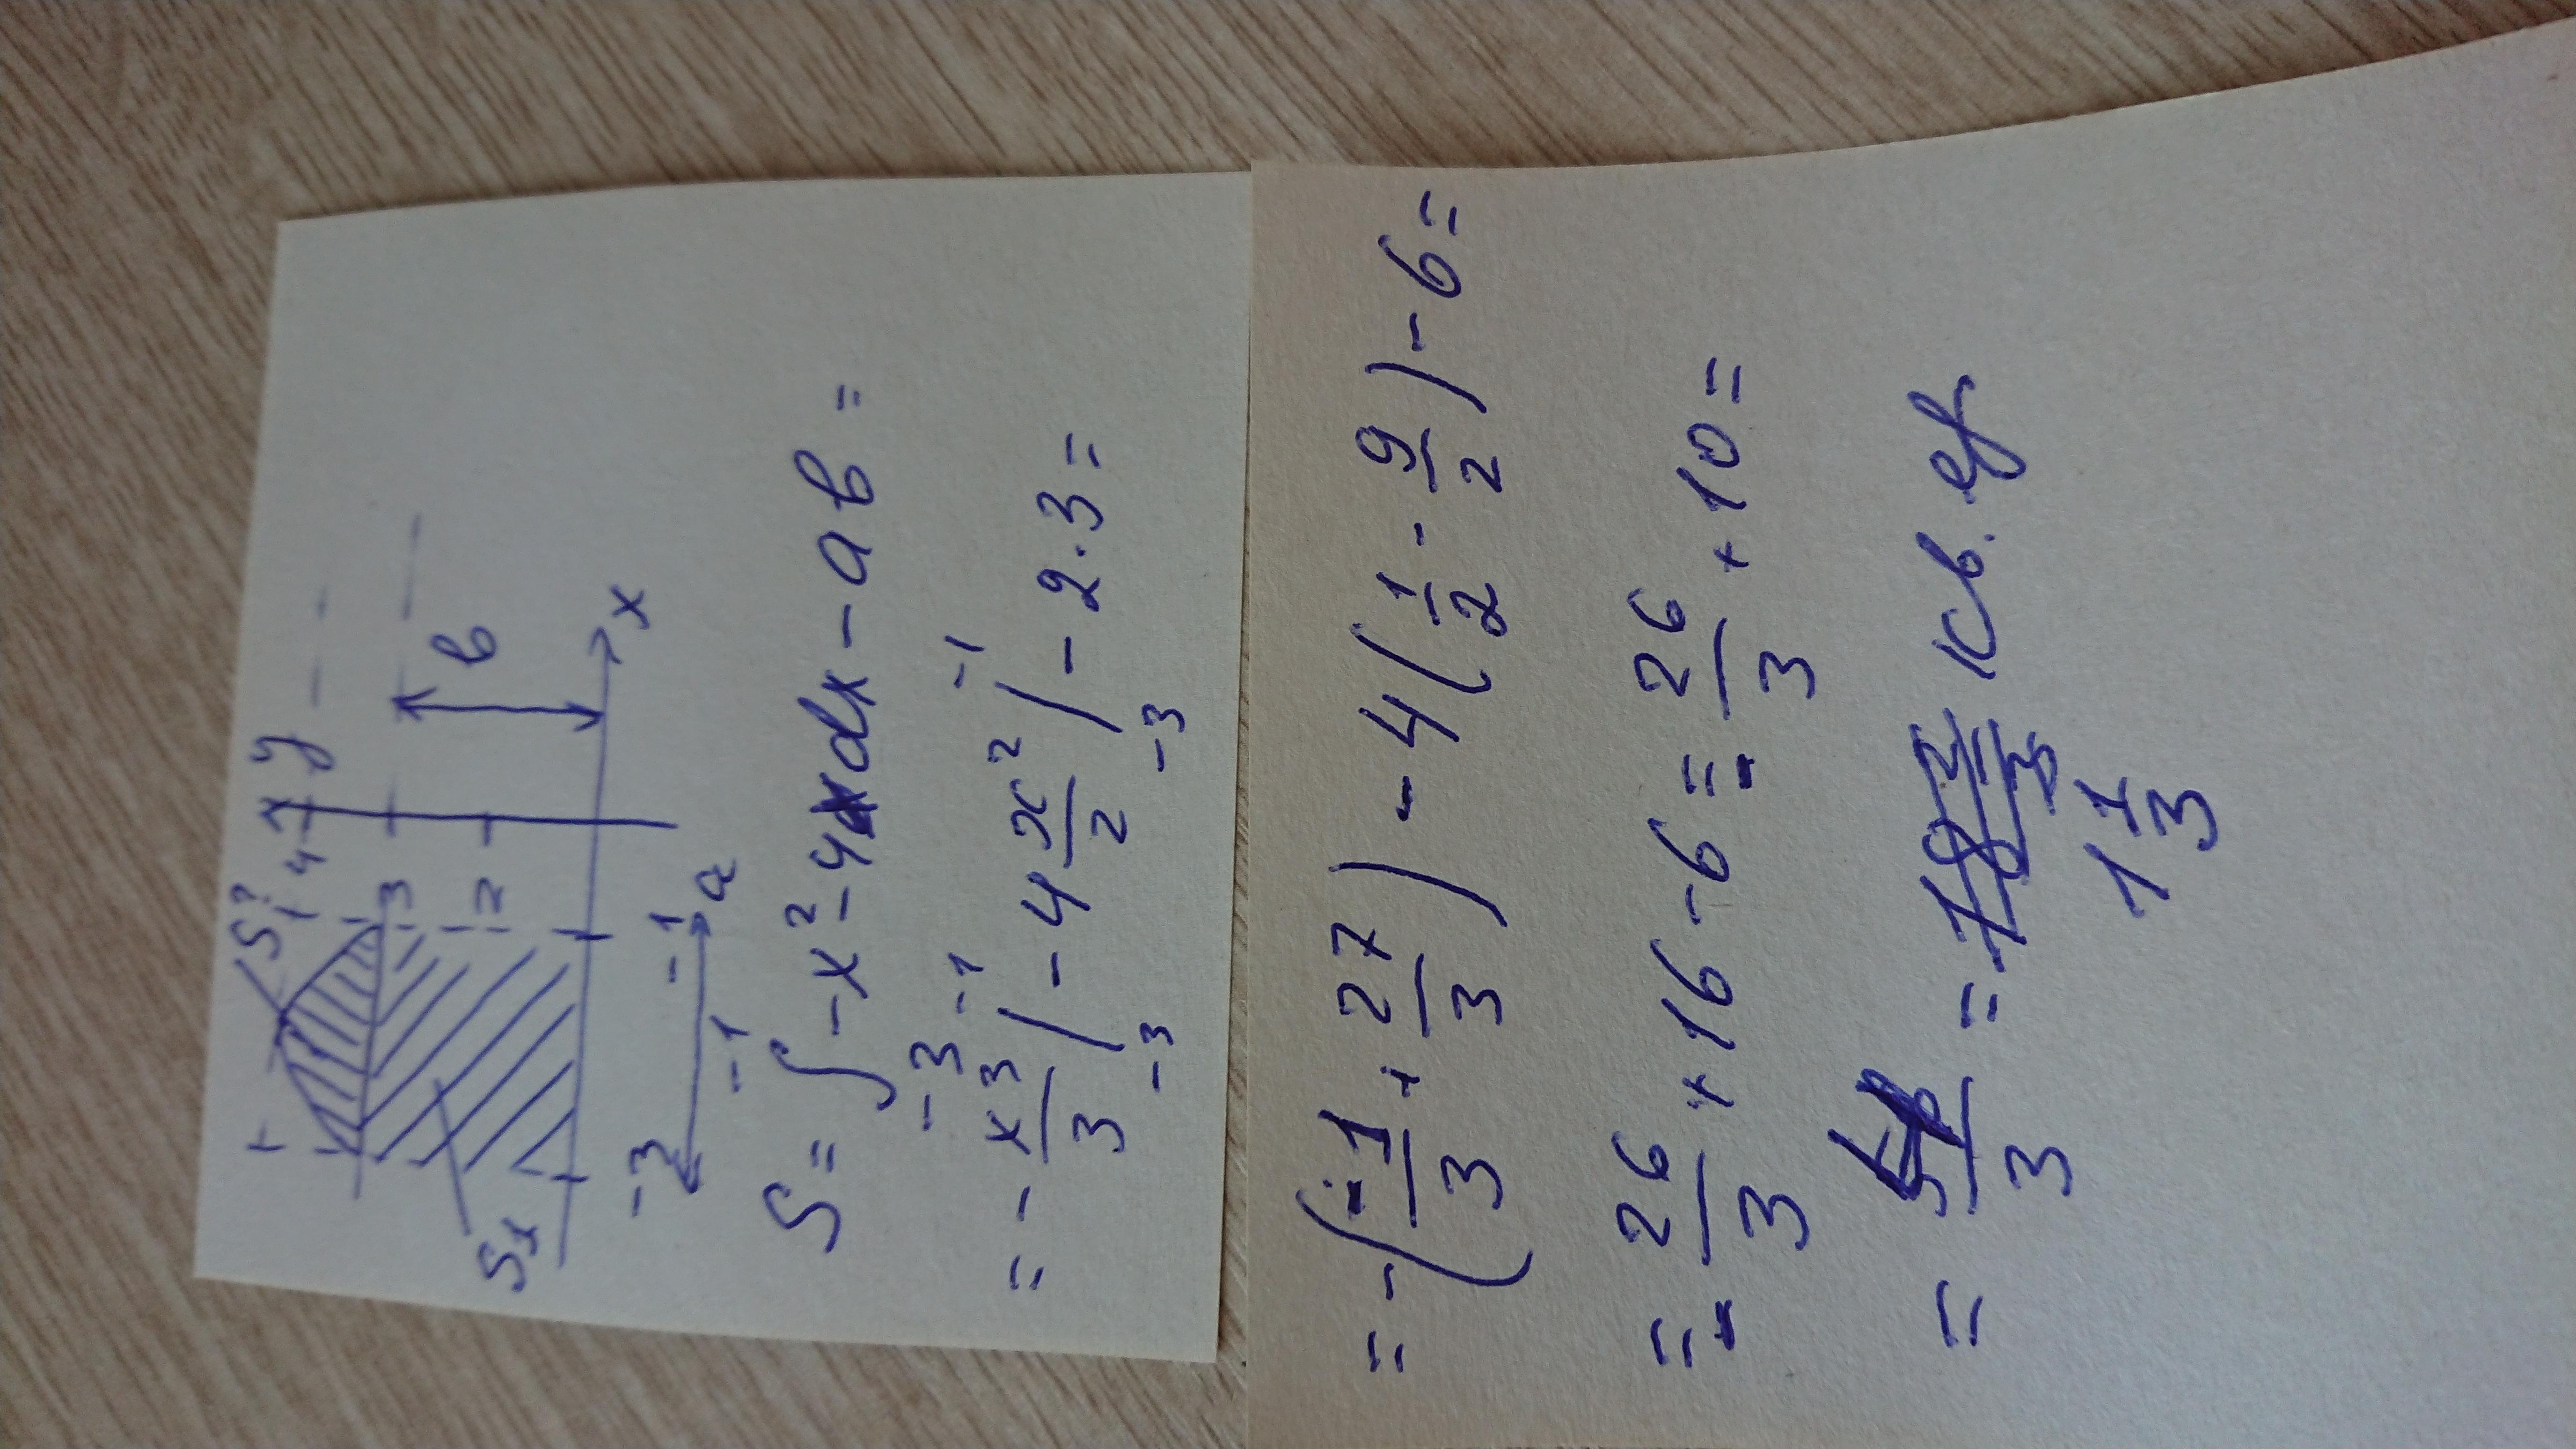 S? 4 y
3
2 b
S₁ x
-3 -1
a
S = ∫₋₃⁻¹ -x² - 4x dx - ab =
= - x³/3 |₋₃⁻¹ - 4 x²/2 |₋₃⁻¹ - 2·3 =
= -(-1/3 + 27/3) - 4(1/2 - 9/2) - 6 =
= -26/3 + 16 - 6 = -26/3 + 10 =
= 4/3 = 1 1/3 кв. ед